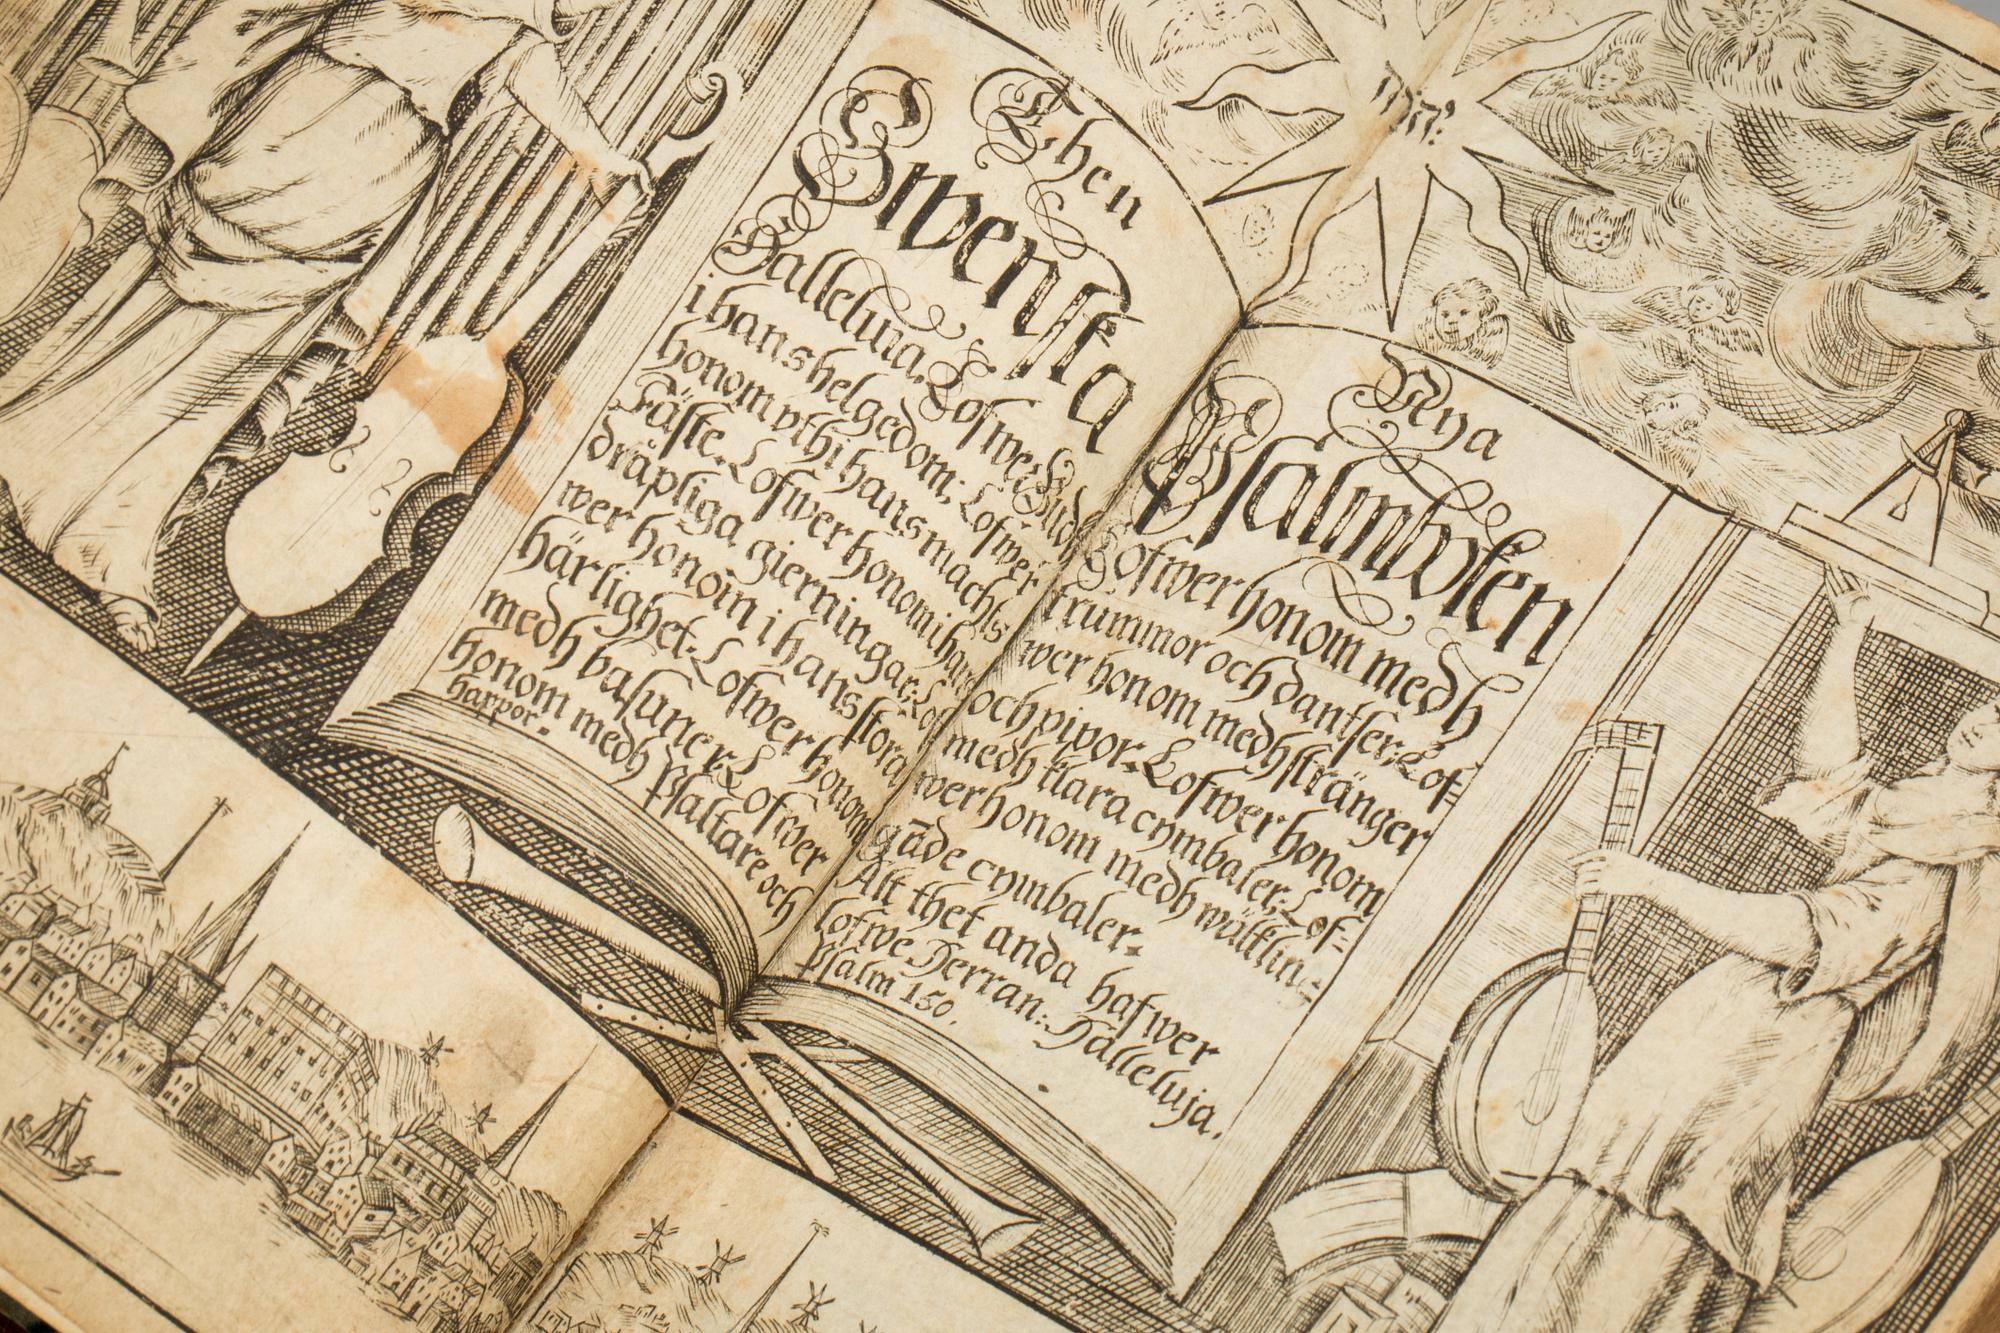 Then
Swenska
Halleluia. Lofwer Gudh
i hans helgedom; Lofwer
honom vthi hans machts
Fäste. Lofwer honom i hans
dråpliga gierningar: Lof
wer honom i hans stora
härlighet. Lofwer honom
medh basuner: Lofwer
honom medh Psaltare och
harpor.
Nya
Psalmboken
Lofwer honom medh
trummor och dantser: Lof=
wer honom medh stränger
och pipor: Lofwer honom
medh klara cymbaler: Lof=
wer honom medh wälklin=
gāde cymbaler.
Alt thet anda hafwer
lofwe Herran: Halleluja.
Psalm 150.